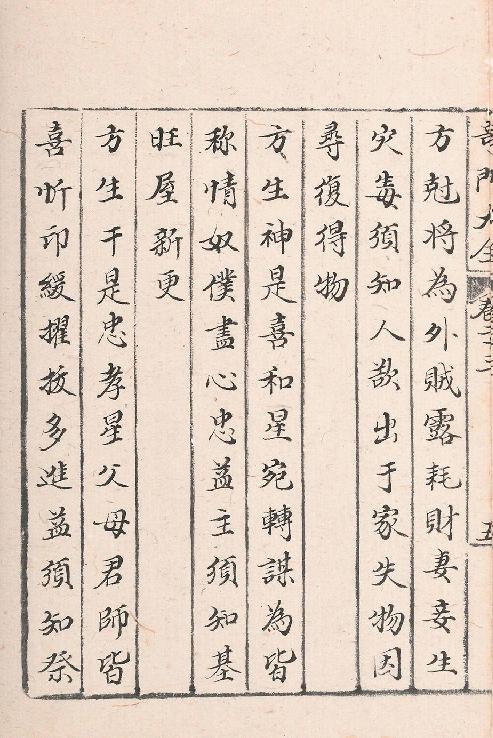 奇門大全
方尅将為外賊露耗財妻妾生
灾毒須知人欲出于家失物因
尋復得物
方生神是喜和星宛轉謀為皆
称情奴僕盡心忠益主須知基
旺屋新更
方生干是忠孝星父母君師皆
喜忻印緩擢拔多進益須知祭